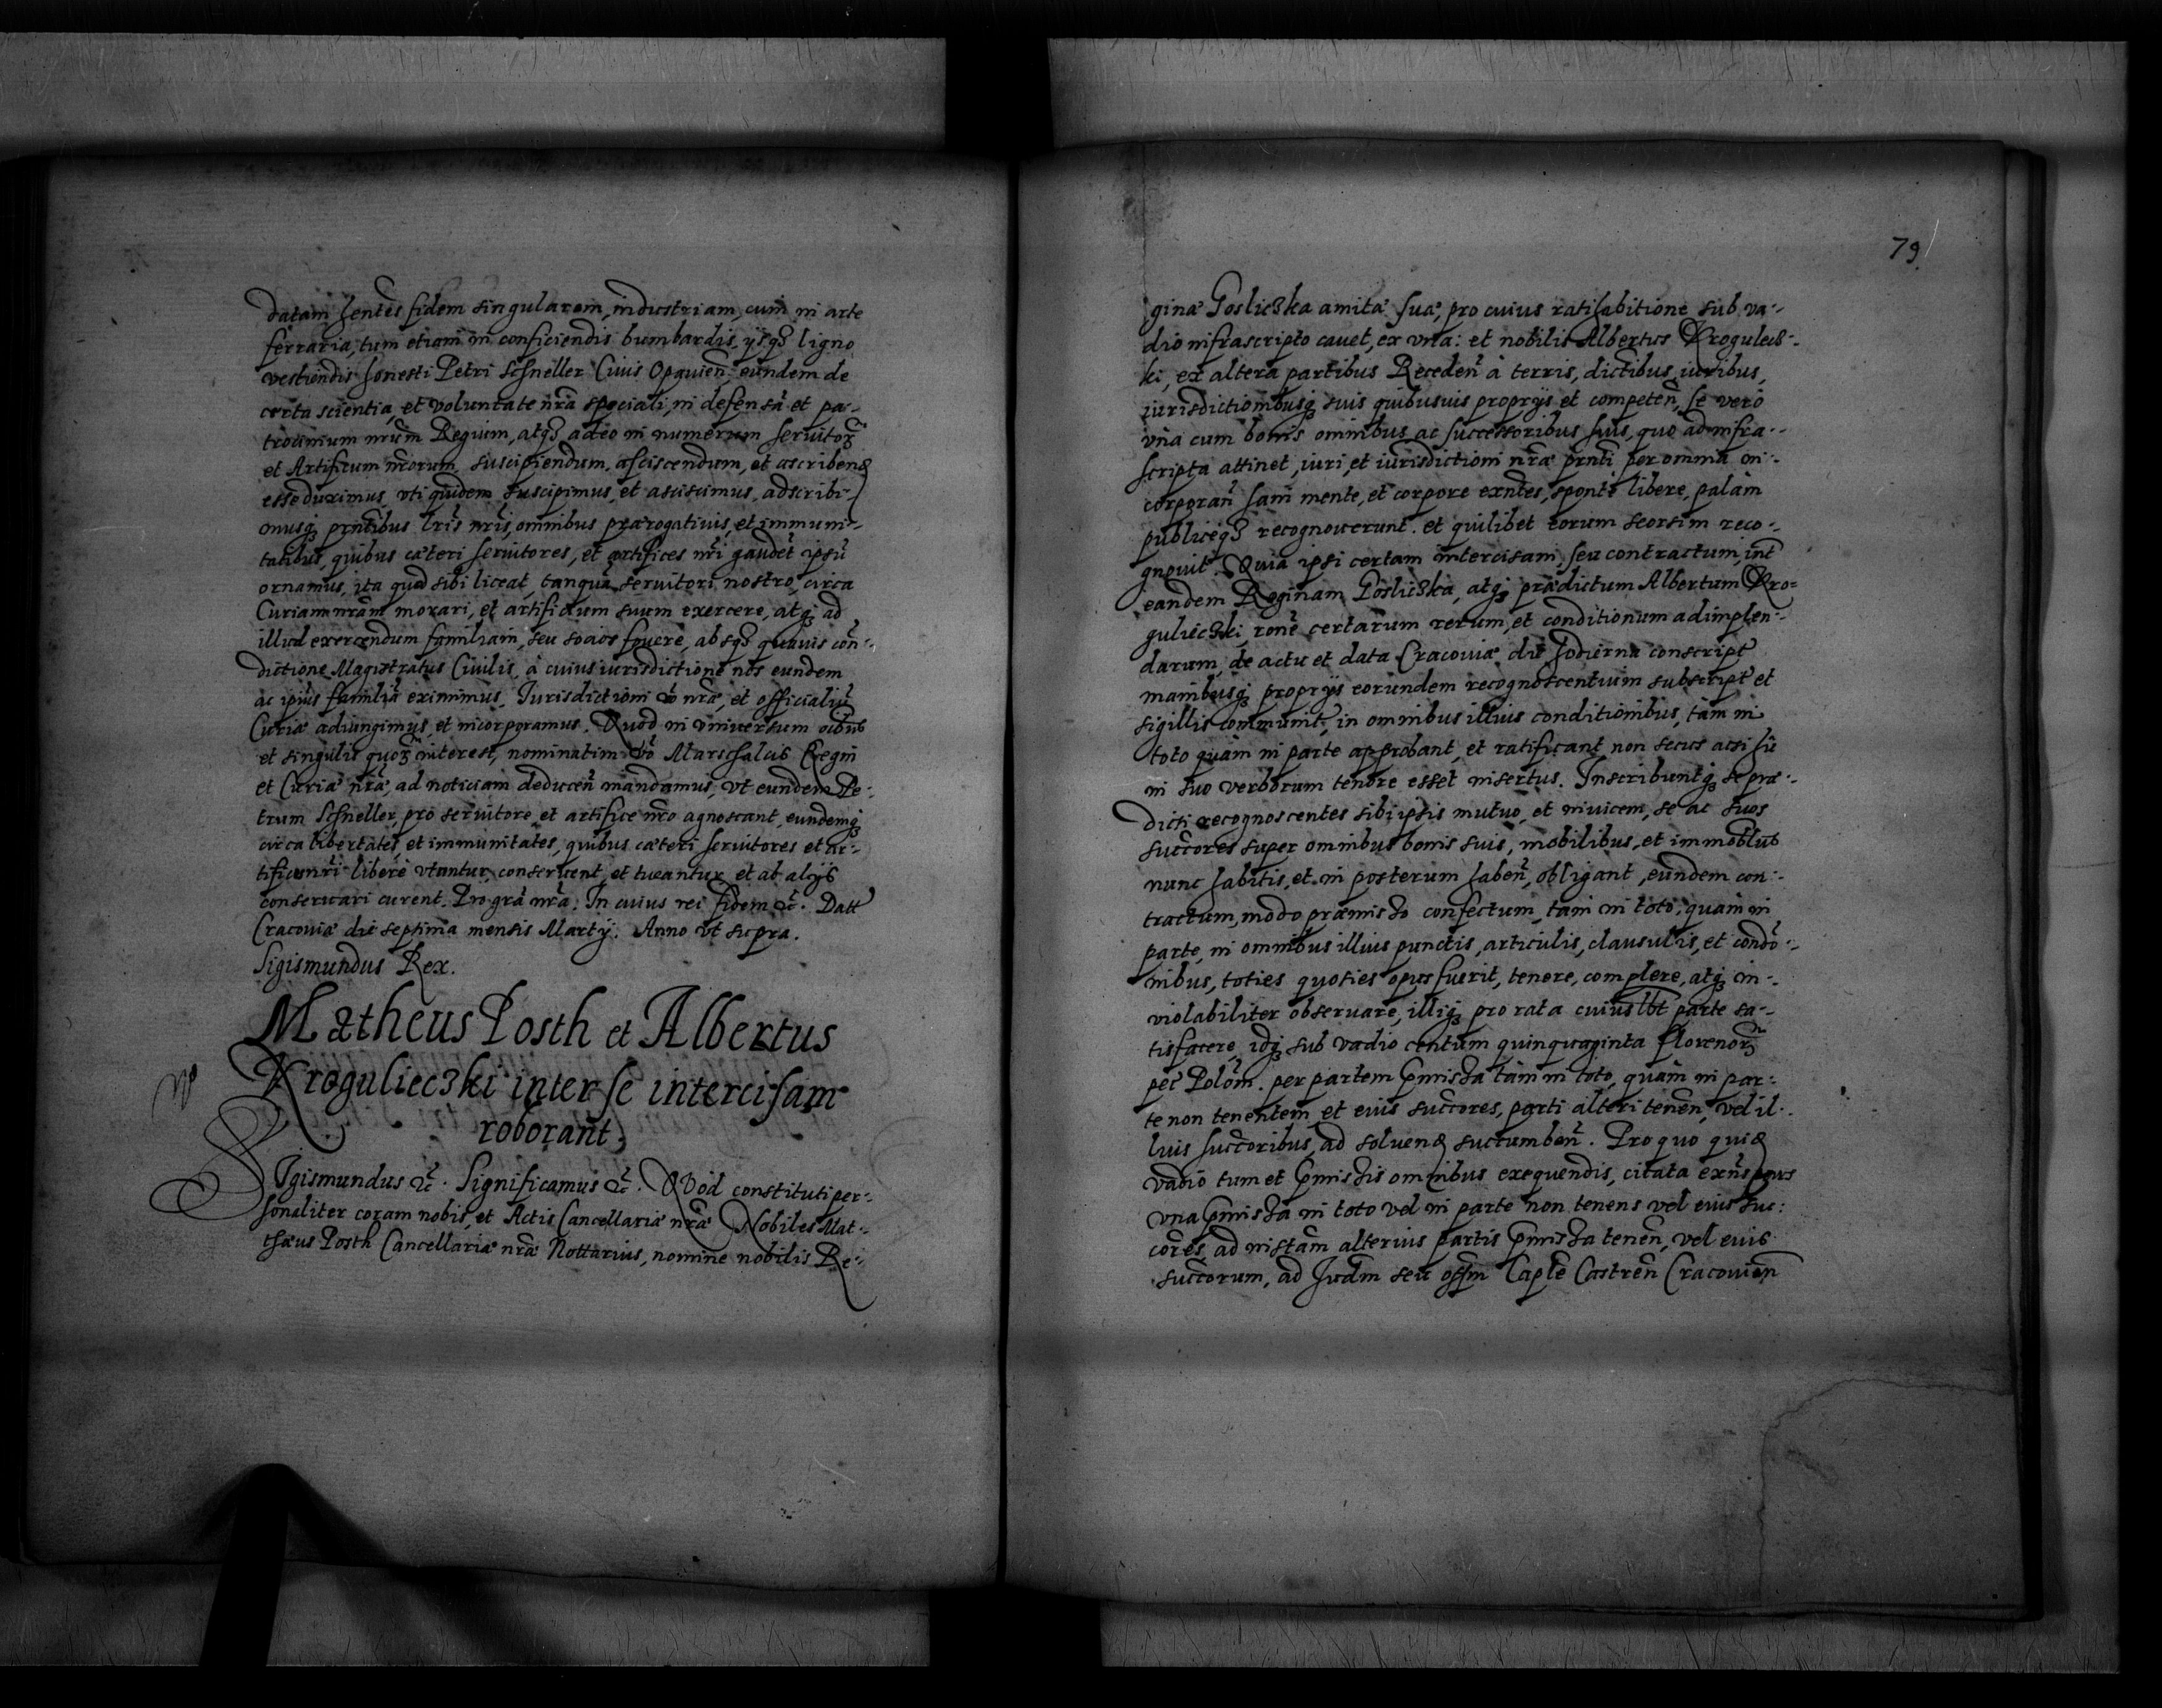 datam hentes fidem singularem, industriam, cum in arte
ferraria, tum etiam in conficiendis bumbardis, ijsq3 ligno
vestiendis honesti Petri Schneller Civis Opavien̄, eundem de
certa scientia, et voluntate nr̄a speciali, in defensā et pa-
trocinium nrūm Regium, atq3 adeo in numerum servitor̄
et Artificum nrōrum suscipiendum, asciscendum, et ascribend
esse duximus, vti quidem suscipimus, et asciscimus, adscribi-
musq3 prn̄tibus lrīs nrīs, omnibus prærogativis, et immuni-
tatibus, quibus cæteri servitores, et artifices nrī gaudēt ipsū
ornamus, ita quod sibi liceat, tanquā servitori nostro, circa
Curiam nrām morari, et artificium suum exercere, atq3 ad
illud exercendum familiam, seu socios fovere, absq3 quavis con-
dictione Magistratus Civilis, à cuius iurisdictione nos eundem
ac ipiūs familiā eximimus, Iurisdictioni vō nrǣ, et officialiū
Curiæ adiungimus, et incorporamus. Quod in vniversum oībus
et singulis quor̄ interest, nominatim vō Marschalis Regni
et Curiæ nrǣ, ad noticiam deducen̄ mandamus, vt eundem Pe-
trum Schneller, pro servitore, et artifice nrō agnoscant, eundemq3
circa libertates, et immunitates, quibus cæteri servitores et ar-
tifices nrī libere vtuntur, conservent, et tueantur, et ab alijs
conservari curent. Pro grā nrā. In cuius rei fidem &c. Datt
Cracoviæ die septima mensis Martij. Anno vt supra.
Sigismundus Rex.
Matheus Posth et Albertus
Kroguliec3ki inter se intercisam
roborant.
SIgismundus &c. Significamus &c. QVod constituti per-
sonaliter coram nobis, et Actis Cancellariæ nrǣ Nobiles Mat-
thæus Posth Cancellariæ nrǣ Nottarius, nomine nobilis Re-
79.
ginæ Goslic3ka amitæ suæ, pro cuius ratihabitione sub va-
dio infrascripto cavet, ex vna: et nobilis Albertus Krogulec3-
ki, ex altera partibus Receden̄ à terris, dictibus, iuribus,
iurisdictionibusq3 suis quibusvis proprijs et competen̄, se vero
vna cum bonis omnibus ac successoribus suis, quo ad infra-
scripta attinet, iuri, et iurisdictioni nrǣ prn̄ti per omnia in-
corporan̄ sani mente, et corpore exn̄tes, sponte libere, palam
publiceq3 recognoverunt. et quilibet eorum seorsim reco-
gnovit. Quia ipsi certam intercisam, seu contractum, int̄
eandem Reginam Goslic3ka, atq3 prædictum Albertum Kro-
guliec3ki, ronē certarum rerum, et conditionum adimplen-
darum, de actu et data Cracoviæ die hodierna conscript
manibusq3 proprijs eorundem recognoscentium subscript et
sigillis communit, in omnibus illius conditionibus, tam in
toto quàm in parte approbant, et ratificant non secus acsi hic
in suo verborum tenore esset insertus. Inscribuntq3 se præ-
dicti recognoscentes sibi ipsis mutuo, et invicem, se ac suos
succores super omnibus bonis suis, mobilibus, et immobl̄ibus
nunc habitis, et in posterum haben̄, obligant, eundem con-
tractum, modo præmisso confectum, tam in toto, quam in
parte, in omnibus illius punctis, articulis, clausulis, et condō-
nibus, toties quoties opus fuerit, tenere, complere, atq3 in-
violabiliter observare, illiq3 pro rata cuiusl̄bt parte sa-
tisfacere, idq3 sub vadio centum quinquaginta florenor̄
pec̄ Polōn. per partem p̄missa tam in toto, quàm in par-
te non tenentem, et eius succores, parti alteri tenen̄, vel il-
lius succoribus, ad solvend succumben̄. Pro quo, quid
vadio tum et p̄missis omnibus exequendis, citata exn̄s pars
vna p̄missa in toto vel in parte non tenens vel eius suc-
cores, ad instam alterius partis p̄missa tenen̄, vel eius
succorum, ad Iudm̄ seu offm̄ Caplē Castren̄ Cracovien̄